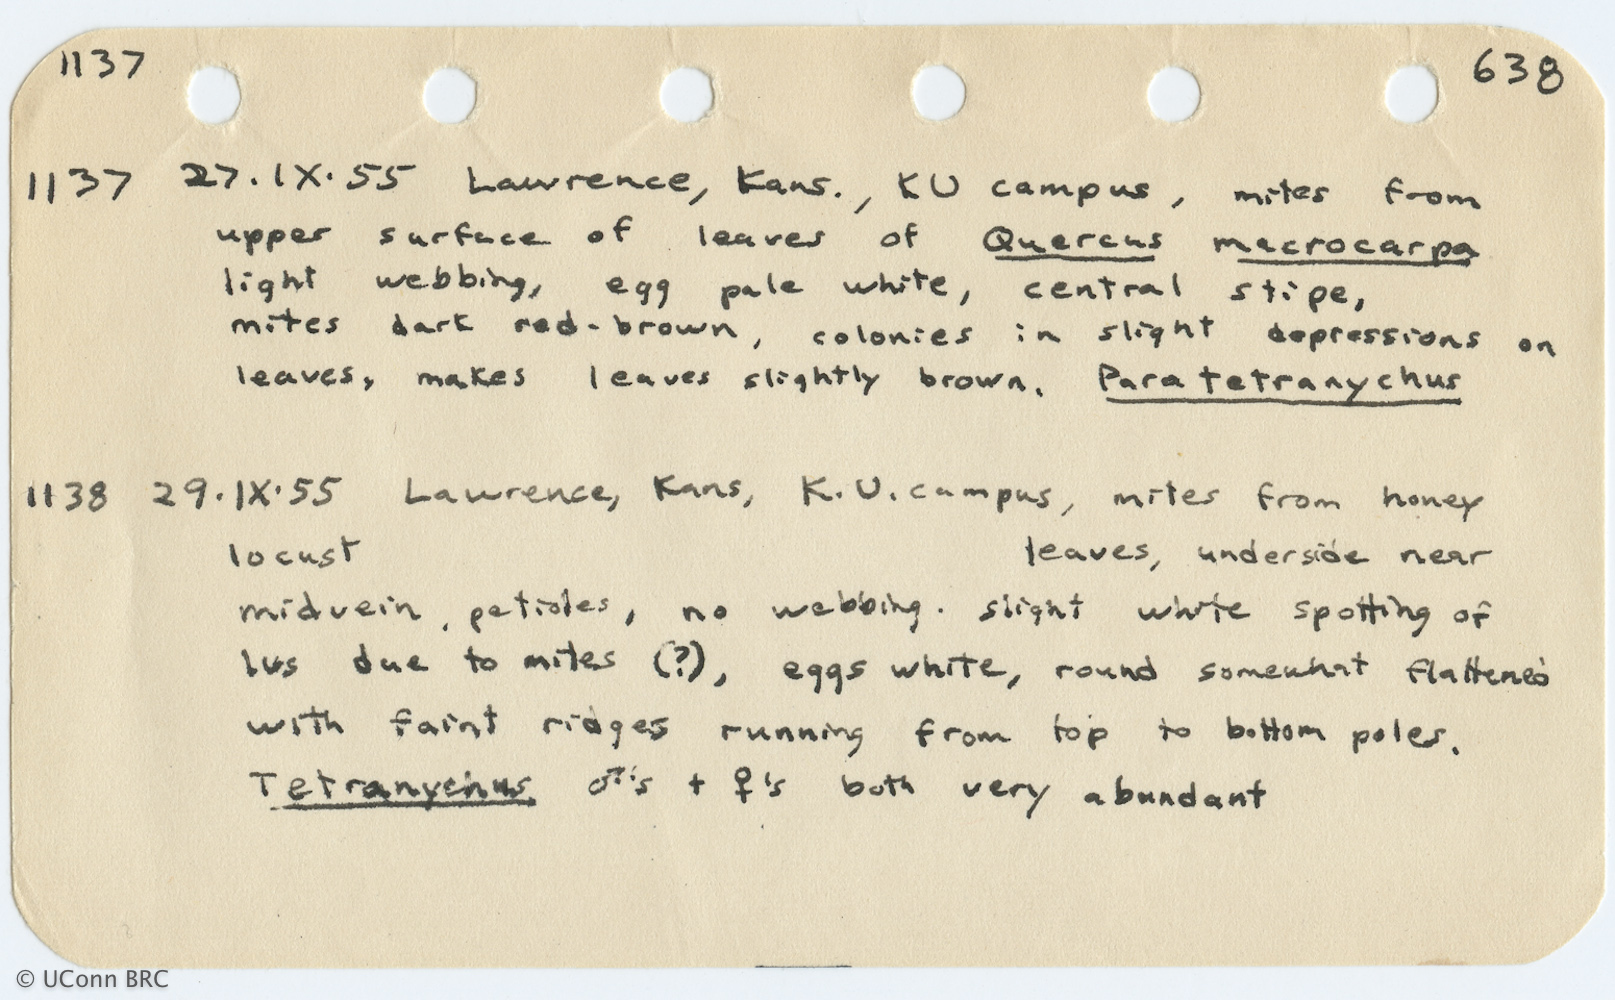 1137 638
1137 27.IX.55 Lawrence, Kans., KU campus, mites from
upper surface of leaves of Quercus macrocarpa
light webbing, egg pale white, central stipe,
mites dark red-brown, colonies in slight depressions on
leaves, makes leaves slightly brown. Paratetranychus
1138 29.IX.55 Lawrence, Kans, K.U. campus, mites from honey
locust leaves, underside near
midvein, petioles, no webbing. slight white spotting of
lvs due to mites (?), eggs white, round somewhat flattened
with faint ridges running from top to bottom poles.
Tetranychus ♂'s + ♀'s both very abundant
© UConn BRC